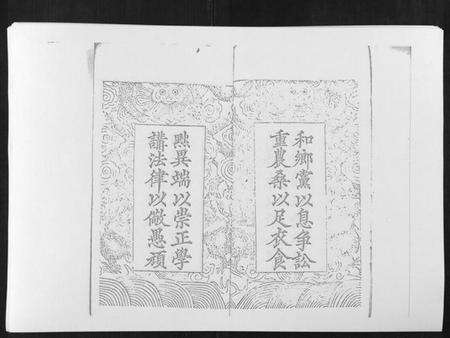 和鄉黨以息爭訟
重農桑以足衣食
黜異端以崇正學
講法律以儆愚頑